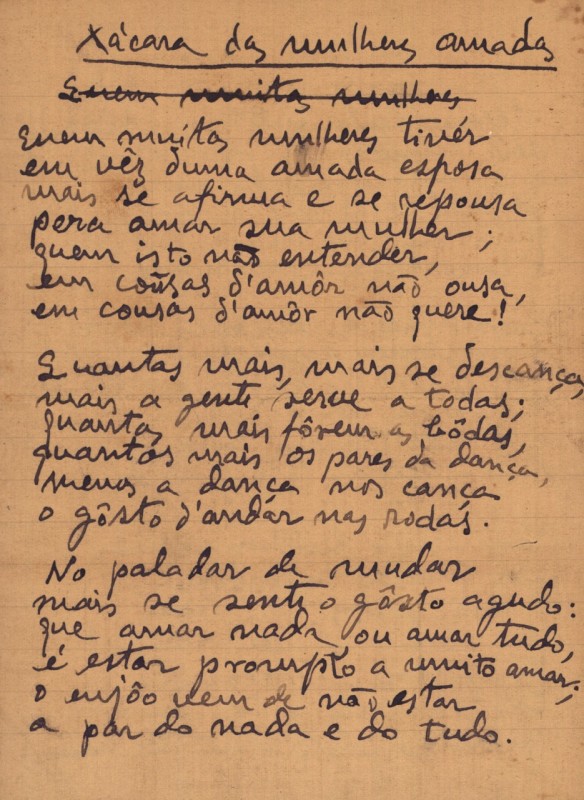 Xácara das mulheres amadas
Quem muitas mulheres
Quem muitas mulheres tivér
em vêz duma amada esposa
mais se afirma e se repousa
pera amar sua mulher;
quem isto não entender,
em cousas d'amôr não ousa,
em cousas d'amôr não quere!
Quantas mais, mais se descança,
mais a gente serve a todas;
quantas mais fôrem as bôdas,
quantos mais os pares da dança,
menos a dança nos cança
o gôsto d'andar nas rodas.
No paladar de mudar
mais se sente o gôsto agudo:
que amar nada, ou amar tudo,
é estar prompto a muito amar;
o enjôo vem de não estar
a par do nada e do tudo.